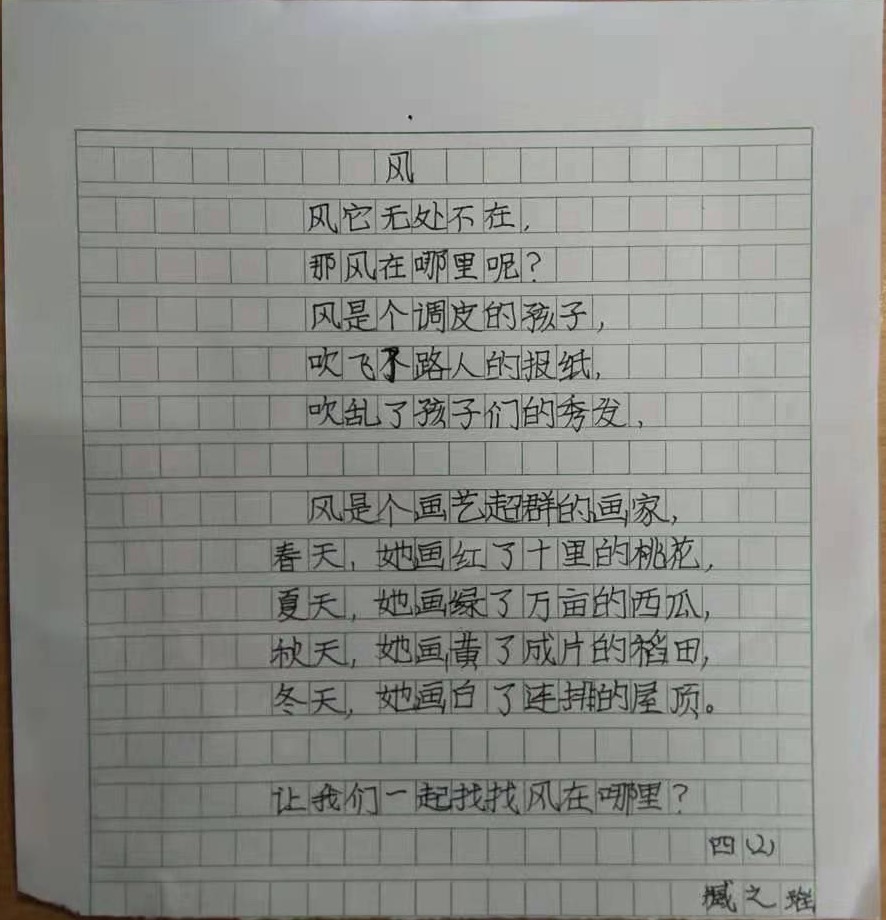 风
风它无处不在，
那风在哪里呢？
风是个调皮的孩子，
吹飞了路人的报纸，
吹乱了孩子们的秀发，
风是个画艺超群的画家，
春天，她画红了十里的桃花，
夏天，她画绿了万亩的西瓜，
秋天，她画黄了成片的稻田，
冬天，她画白了连排的屋顶。
让我们一起找找风在哪里？
四（2）
之